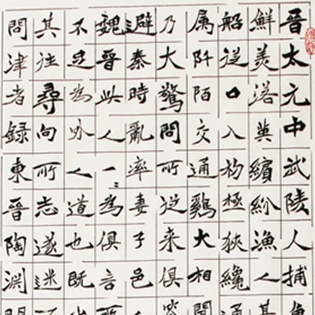 晋太元中武陵人捕魚
鮮美落英繽紛漁人甚
船從口入初極狹纔通
属阡陌交通鷄犬相聞
乃大驚問所從來俱答
避秦時亂率妻子邑
魏晉此人一一為俱言所
不足為外人道也既出
其往尋向所志遂迷
問津者録東晉陶淵明